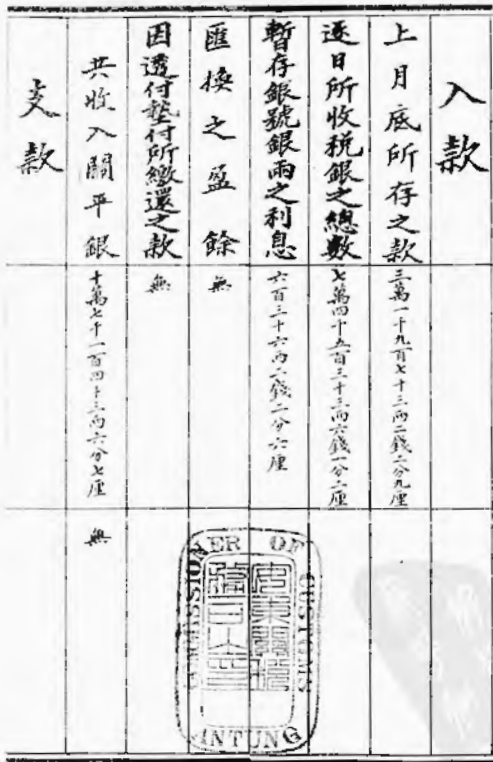 入款
上月底所存之款 三萬一千九百七十三兩二錢二分九厘
逐日所收税銀之總數 七萬四千五百三十三兩六錢一分二厘
暫存銀號銀兩之利息 六百三十六兩二錢二分六厘
匯換之盈餘 無
因透付墊付所繳還之款 無
共收入關平銀 十萬七千一百四十三兩六分七厘 無
支款
COMMISSIONER OF CUSTOMS
ANTUNG
安東關稅
務司之